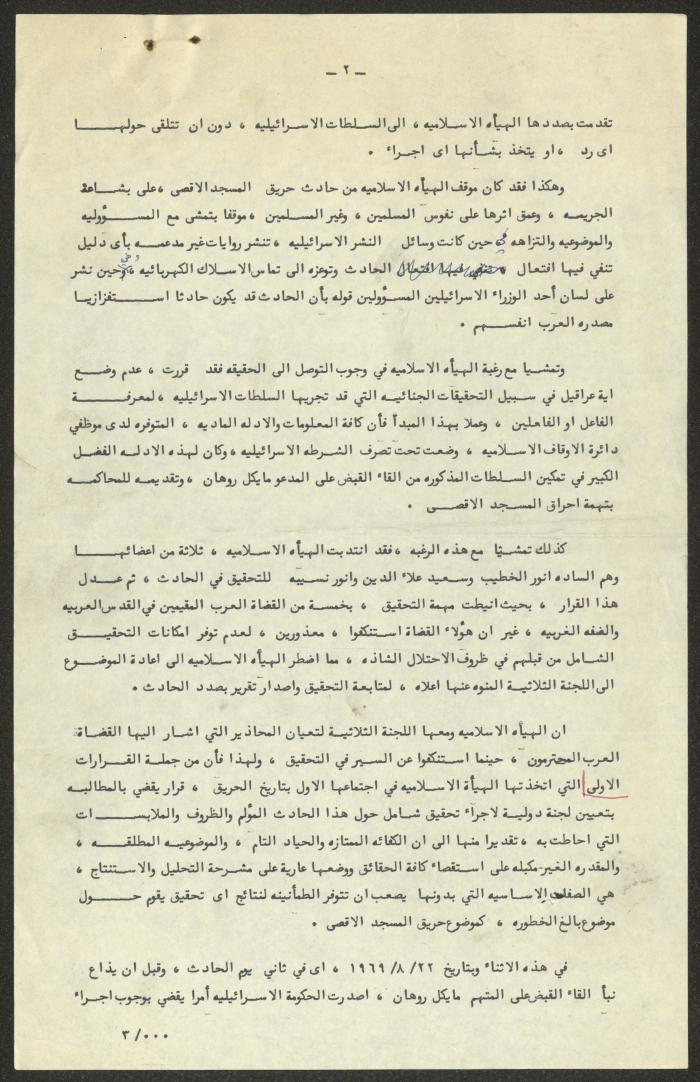 – ٢ –
تقدمت بصددها الهيأه الاسلاميه ، الى السلطات الاسرائيليه ، دون ان تتلقى حولهـــــا
اى رد ، او يتخذ بشأنها اى اجراء .
وهكذا فقد كان موقف الهيأه الاسلاميه من حادث حريق المسجد الاقصى ، على بشــاعة
الجريمــه ، وعمق اثرها على نفوس المسلمين ، وغير المسلمين ، موقفا يتمشى مع المســؤوليه
والموضوعيه والنزاهه في حين كانت وسائل النشر الاسرائيليه ، تنشر روايات غير مدعمــه بأى دليل
تنفي فيها افتعال الحادث وتوعزه الى تماس الاسلاك الكهربائيه ، وفي حين نشر
على لسان أحد الوزراء الاسرائيلين المســؤولين قوله بأن الحادث قد يكون حادثا اســتفزازيا
مصدره العرب انفســهم .
وتمشــيا مع رغبة الهيأه الاسلاميه في وجوب التوصل الى الحقيقه فقد قررت ، عدم وضــع
اية عراقيل في سبيل التحقيقات الجنائيــه التي قد تجريها السلطات الاسرائيليه ، لمعرفــــة
الفاعل او الفاعلين ، وعملا بهــذا المبدأ فأن كافة المعلومات والادله الماديه ، المتوفره لدى موظفي
دائرة الاوقاف الاســلاميه ، وضعت تحت تصرف الشـرطه الاسرائيليه ، وكان لهــذه الادلــه الفضل
الكبير في تمكين السلطات المذكوره من القاء القبض على المدعو مايكل روهان ، وتقديمــه للمحاكمــه
بتهمة احراق المسـجد الاقصــى .
كذلك تمشــيا مع هذه الرغبه ، فقد انتدبت الهيأه الاســلاميه ، ثلاثة من اعضائهـــا
وهم الساده انور الخطيب وسـعيد علاء الدين وانور نسـيبه للتحقيق في الحادث ، ثم عــدل
هذا القرار ، بحيث انيطت مهمة التحقيق ، بخمسـة من القضاة العرب المقيمين في القدس العربيه
والضفه الغربيه ، غير ان هؤلاء القضاة اســتنكفوا ، معذورين ، لعدم توفر امكانات التحقيـــق
الشـامل من قبلهم في ظروف الاحتلال الشاذه ، مما اضطر الهيأه الاسلاميه الى اعادة الموضــوع
الى اللجنة الثلاثيــة المنوه عنها اعلاه ، لمتابعة التحقيق واصدار تقرير بصدد الحادث .
ان الهيأه الاسلاميه ومعهـا اللجنة الثلاثيــة لتعيان المحاذير التي اشـار اليها القضـاة
العرب المحترمون ، حينما استنكفوا عن السير في التحقيق ، ولهذا فأن من جملــة القــرارات
الاولى التي اتخذتها الهيأة الاسلاميه في اجتماعها الاول بتاريخ الحريق ، قرار يقضي بالمطالبــه
بتعيين لجنة دوليــة لاجراء تحقيق شـامل حول هذا الحادث المؤلم والظروف والملابســـات
التي احاطت به ، تقديرا منها الى ان الكفائه الممتازه والحياد التام ، والموضوعيــه المطلقــه ،
والمقدره الغير مكبله على استقصاء كافة الحقائق ووضعهـا عارية على مشـرحة التحليل والاســتنتاج ،
هي الصفات الاساسيه التي بدونهـا يصعب ان تتوفر الطمأنينه لنتائج اى تحقيق يقوم حــــول
موضوع بالغ الخطوره ، كموضوع حريق المسجد الاقصى .
في هذه الاثناء وبتاريخ ٢٢/ ٨/ ١٩٦٩ ، اى في ثاني يوم الحادث ، وقبل ان يذاع
نبأ القاء القبض على المتهم مايكل روهان ، اصدرت الحكومة الاسـرائيليه أمرا يقضي بوجوب اجـراء
٠٠٠/ ٣